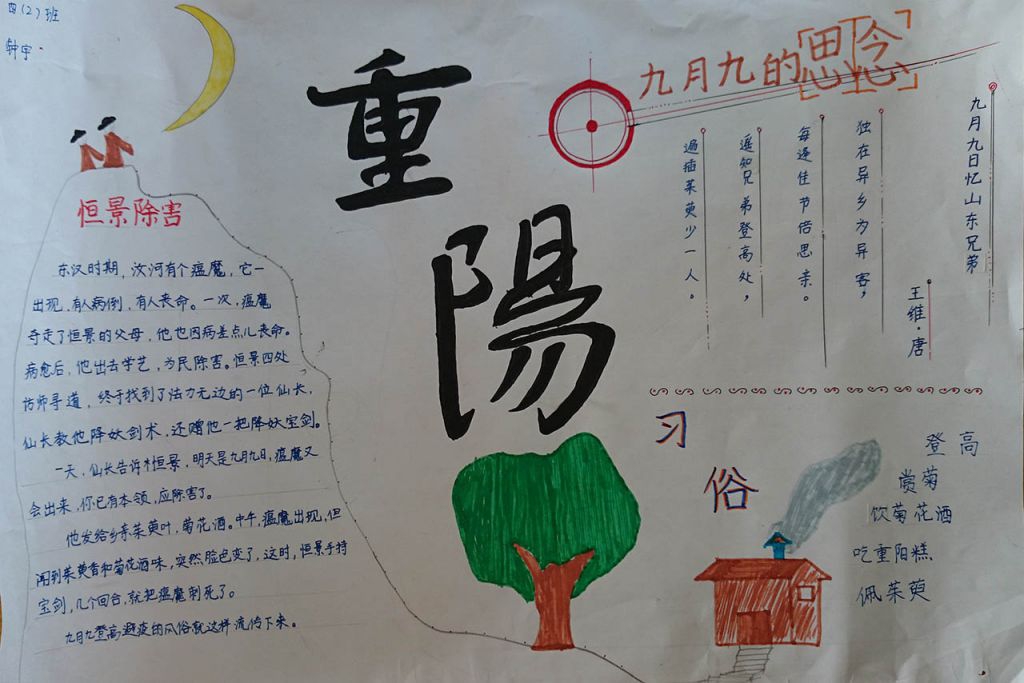 四(2)班
钟宇
重
陽
恒景除害
东汉时期，汝河有个瘟魔，它一
出现，有人病倒，有人丧命。一次，瘟魔
夺走了恒景的父母，他也因病差点儿丧命。
病愈后，他出去学艺，为民除害。恒景四处
访师寻道，终于找到了法力无边的一位仙长，
仙长教他降妖剑术，还赠他一把降妖宝剑。
一天，仙长告诉恒景，明天是九月九日，瘟魔又
会出来，你已有本领，应除害了。
他发给乡亲茱萸叶，菊花酒。中午，瘟魔出现，但
闻到茱萸香和菊花酒味，突然脸色变了，这时，恒景手持
宝剑，几个回合，就把瘟魔刺死了。
九月九登高避疫的风俗就这样流传下来。
九月九的思念
九月九日忆山东兄弟
王维·唐
独在异乡为异客，
每逢佳节倍思亲。
遥知兄弟登高处，
遍插茱萸少一人。
习
俗
登高
赏菊
饮菊花酒
吃重阳糕
佩茱萸